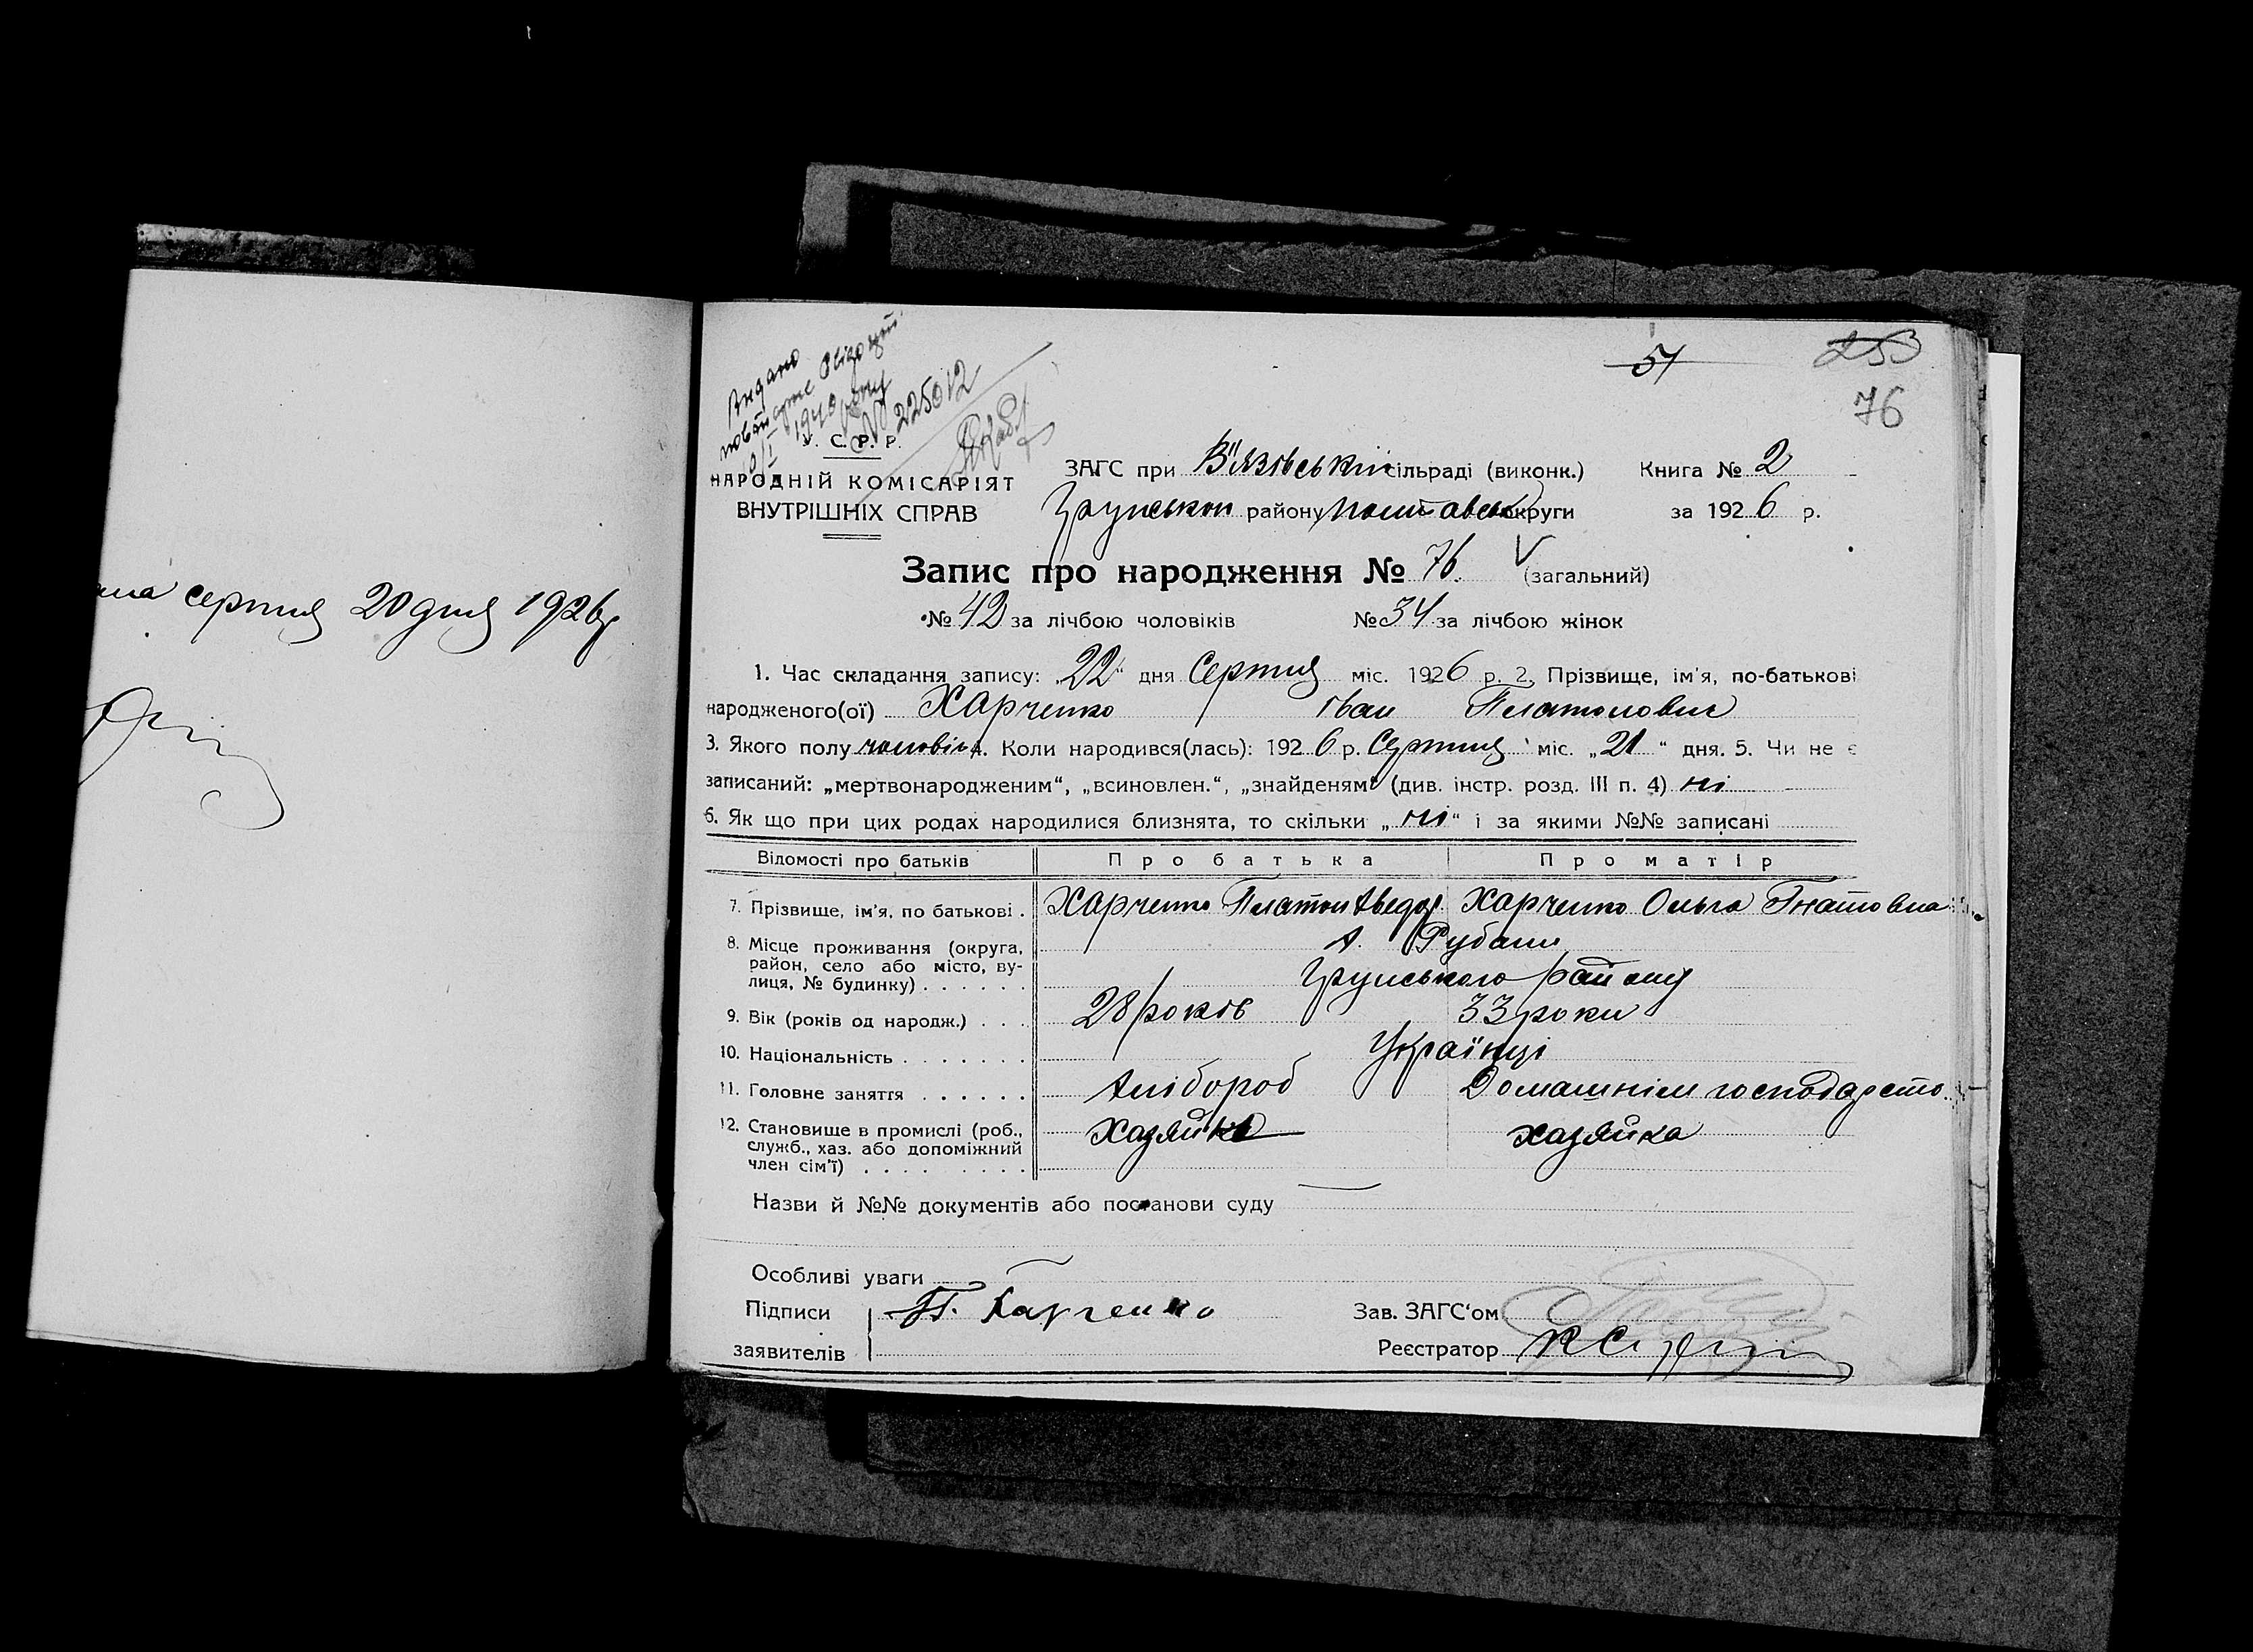 ана серпня 20 дня 1926 р
51
253
76
Видано
1940 року
№ 225012
У. С. Р. Р.
НАРОДНІЙ КОМІСАРІЯТ
ВНУТРІШНІХ СПРАВ
ЗАГС при В'язівській сільраді (виконк.) Книга № 2
Грунськом району Полтавськ округи за 1926 р.
Запис про народження № 76. V (загальний)
№ 42 за лічбою чоловіків № 34 за лічбою жінок
1. Час складання запису: „22“ дня Серпня міс. 1926 р. 2. Прізвище, ім'я, по-батькові
народженого(ої) Харченко Іван Платонович
3. Якого полу чоловік 4. Коли народився(лась): 1926 р. Серпня міс. „21“ дня. 5. Чи не є
записаний: „мертвонародженим“, „всиновлен.“, „знайденям“ (див. інстр. розд. III п. 4) ні
6. Як що при цих родах народилися близнята, то скільки „ні“ і за якими №№ записані
Відомості про батьків Про батька Про матір
7. Прізвище, ім'я, по батькові . Харченко Платон Авед Харченко Ольга Гнатовна
8. Місце проживання (округа, район, село або місто, вулиця, № будинку) . . . . . . х. Рубани
Грунського району
9. Вік (років од народж.) . . . 28 років 33 роки
10. Національність . . . . . . . Українці
11. Головне заняття . . . . . . Хлібороб Домашнім господарство
12. Становище в промислі (роб., служб., хаз. або допоміжний член сім'ї) . . . . . . . . Хазяйка хазяйка
Назви й №№ документів або постанови суду —
Особливі уваги —
Підписи П. Харченко Зав. ЗАГС'ом
заявителів Реєстратор